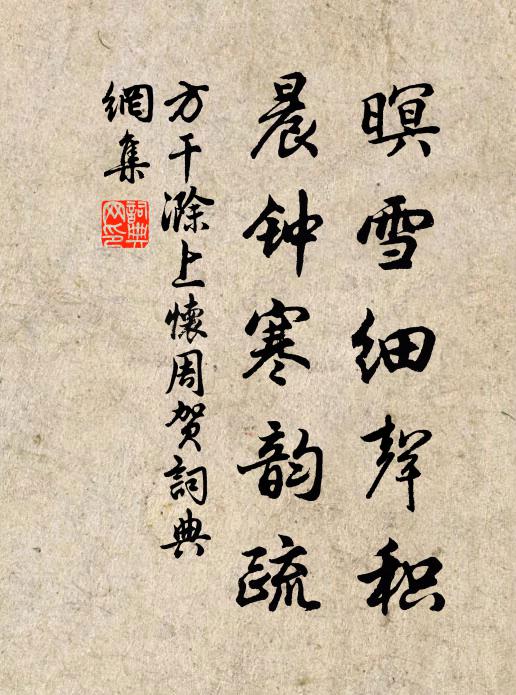 暝雪细声积
晨钟寒韵疏
方干滁上懷周贺詞典
網集
詞典
网印